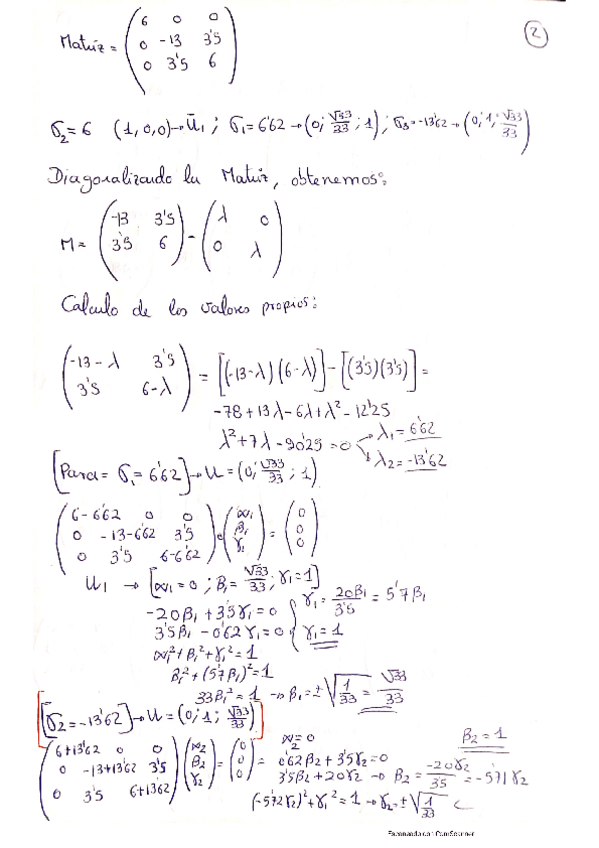 2
Matriz = ( 6 0 0 ; 0 -13 3'5 ; 0 3'5 6 )
σ₂ = 6 (1,0,0) → ū₁ ; σ₁ = 6'62 → (0; √33/33 ; 1) ; σ₃ = -13'62 → (0; 1; √33/33)
Diagonalizando la Matriz, obtenemos:
M = ( -13 3'5 ; 3'5 6 ) - ( λ 0 ; 0 λ )
Calculo de los valores propios:
( -13-λ 3'5 ; 3'5 6-λ ) = [(-13-λ)(6-λ)] - [(3'5)(3'5)] =
-78 + 13λ - 6λ + λ² - 12'25
λ² + 7λ - 90'25 = 0 → λ₁ = 6'62
→ λ₂ = -13'62
[Para = σ₁ = 6'62] → u = (0; √33/33 ; 1)
( 6-6'62 0 0 ; 0 -13-6'62 3'5 ; 0 3'5 6-6'62 ) · ( α₁ ; β₁ ; γ₂ ) = ( 0 ; 0 ; 0 )
u₁ → [α₁ = 0 ; β₁ = √33/33 ; γ₁ = 1]
-20β₁ + 3'5γ₁ = 0 } γ₁ = 20β₁/3'5 = 5'7β₁
3'5β₁ - 0'62γ₁ = 0 } γ₁ = 1
α₁² + β₁² + γ₁² = 1
β₁² + (5'7β₁)² = 1
33β₁² = 1 → β₁ = ±√(1/33) = √33/33
[σ₂ = -13'62] → u = (0; 1; √33/33)
( 6+13'62 0 0 ; 0 -13+13'62 3'5 ; 0 3'5 6+13'62 ) ( α₂ ; β₂ ; γ₂ ) = ( 0 ; 0 ; 0 ) =
α₂ = 0 β₂ = 1
0'62β₂ + 3'5γ₂ = 0
3'5β₂ + 20γ₂ → β₂ = -20γ₂/3'5 = -5'71γ₂
(-5'72γ₂)² + γ₁² = 1 → γ₂ = ±√(1/33)
Escaneado con CamScanner